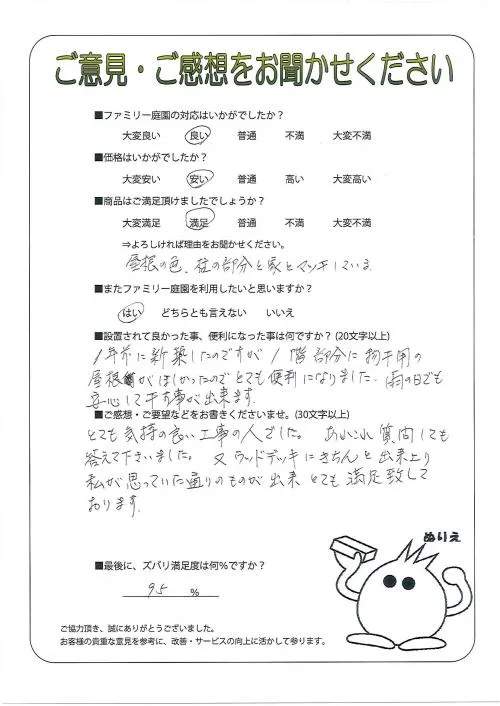 ご意見・ご感想をお聞かせください
■ファミリー庭園の対応はいかがでしたか？
大変良い 良い 普通 不満 大変不満
■価格はいかがでしたか？
大変安い 安い 普通 高い 大変高い
■商品はご満足頂けましたでしょうか？
大変満足 満足 普通 不満 大変不満
⇒よろしければ理由をお聞かせください。
屋根の色、柱の部分と家とマッチしていま
■またファミリー庭園を利用したいと思いますか？
はい どちらとも言えない いいえ
■設置されて良かった事、便利になった事は何ですか？(20文字以上)
1年前に新築したのですが1階部分に物干用の
屋根がほしかったのでとても便利になりました。雨の日でも
安心して干す事が出来ます。
■ご感想・ご要望などをお書きくださいませ。(30文字以上)
とても気持の良い工事の人でした。あれこれ質問しても
答えて下さいました。又ウッドデッキにきちんと出来上り
私が思っていた通りのものが出来とても満足致して
おります。
ぬりえ
■最後に、ズバリ満足度は何％ですか？
95 %
ご協力頂き、誠にありがとうございました。
お客様の貴重な意見を参考に、改善・サービスの向上に活かして参ります。